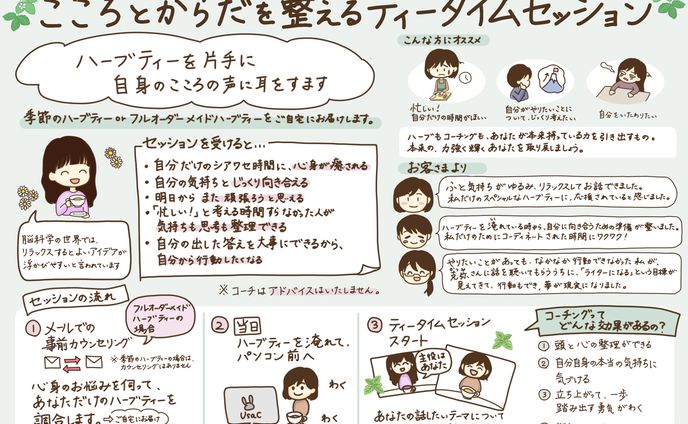 こころとからだを整えるティータイムセッション
ハーブティーを片手に
自身のこころの声に耳をすます
季節のハーブティーorフルオーダーメイドハーブティーをご自宅にお届けします。
こんな方にオススメ
忙しい!
自分だけの時間がほしい
自分がやりたいことに
ついて、じっくり考えたい
自分をいたわりたい
ハーブもコーチングも、あなたが本来持っている力を引き出すもの。
本来の、力強く輝くあなたを取り戻しましょう。
セッションを受けると…
・自分だけのシアワセ時間に、心身が癒される
・自分の気持ちとじっくり向き合える
・明日からまた頑張ろうと思える
・「忙しい!」と考える時間すらなかった人が
気持ちも思考も整理できる
・自分の出した答えを大事にできるから、
自分から行動したくなる
※コーチはアドバイスはいたしません。
脳科学の世界では、
リラックスするとよいアイデアが
浮かびやすいと言われています
お客さまより
ふと気持ちがゆるみ、リラックスしてお話できました。
私だけのスペシャルなハーブティーに、応援されていると感じました。
ハーブティーを淹れている時から、自分に向き合うための準備が整いました。
私だけのためにコーディネートされた時間にワクワク!
やりたいことがあっても、なかなか行動できなかった私が、
さんに話を聴いてもらううちに、「ライターになる」という目標が
見えてきて、行動もでき、夢が現実になりました。
セッションの流れ
フルオーダーメイド
ハーブティーの
場合
① メールでの
事前カウンセリング
※季節のハーブティーの場合は、
カウンセリングはありません
心身のお悩みを伺って、
あなただけのハーブティーを
調合します。⇨ご自宅にお届け
② 当日
ハーブティーを淹れて、
パソコン前へ
UsaC
わく
わく
③ ティータイムセッション
スタート
主役は
あなた
あなたの話したいテーマについて
コーチングって
どんな効果があるの?
① 頭と心の整理ができる
② 自分自身の本当の気持ちに
気づける
③ 立ち上がって、一歩
踏み出す勇気がわく